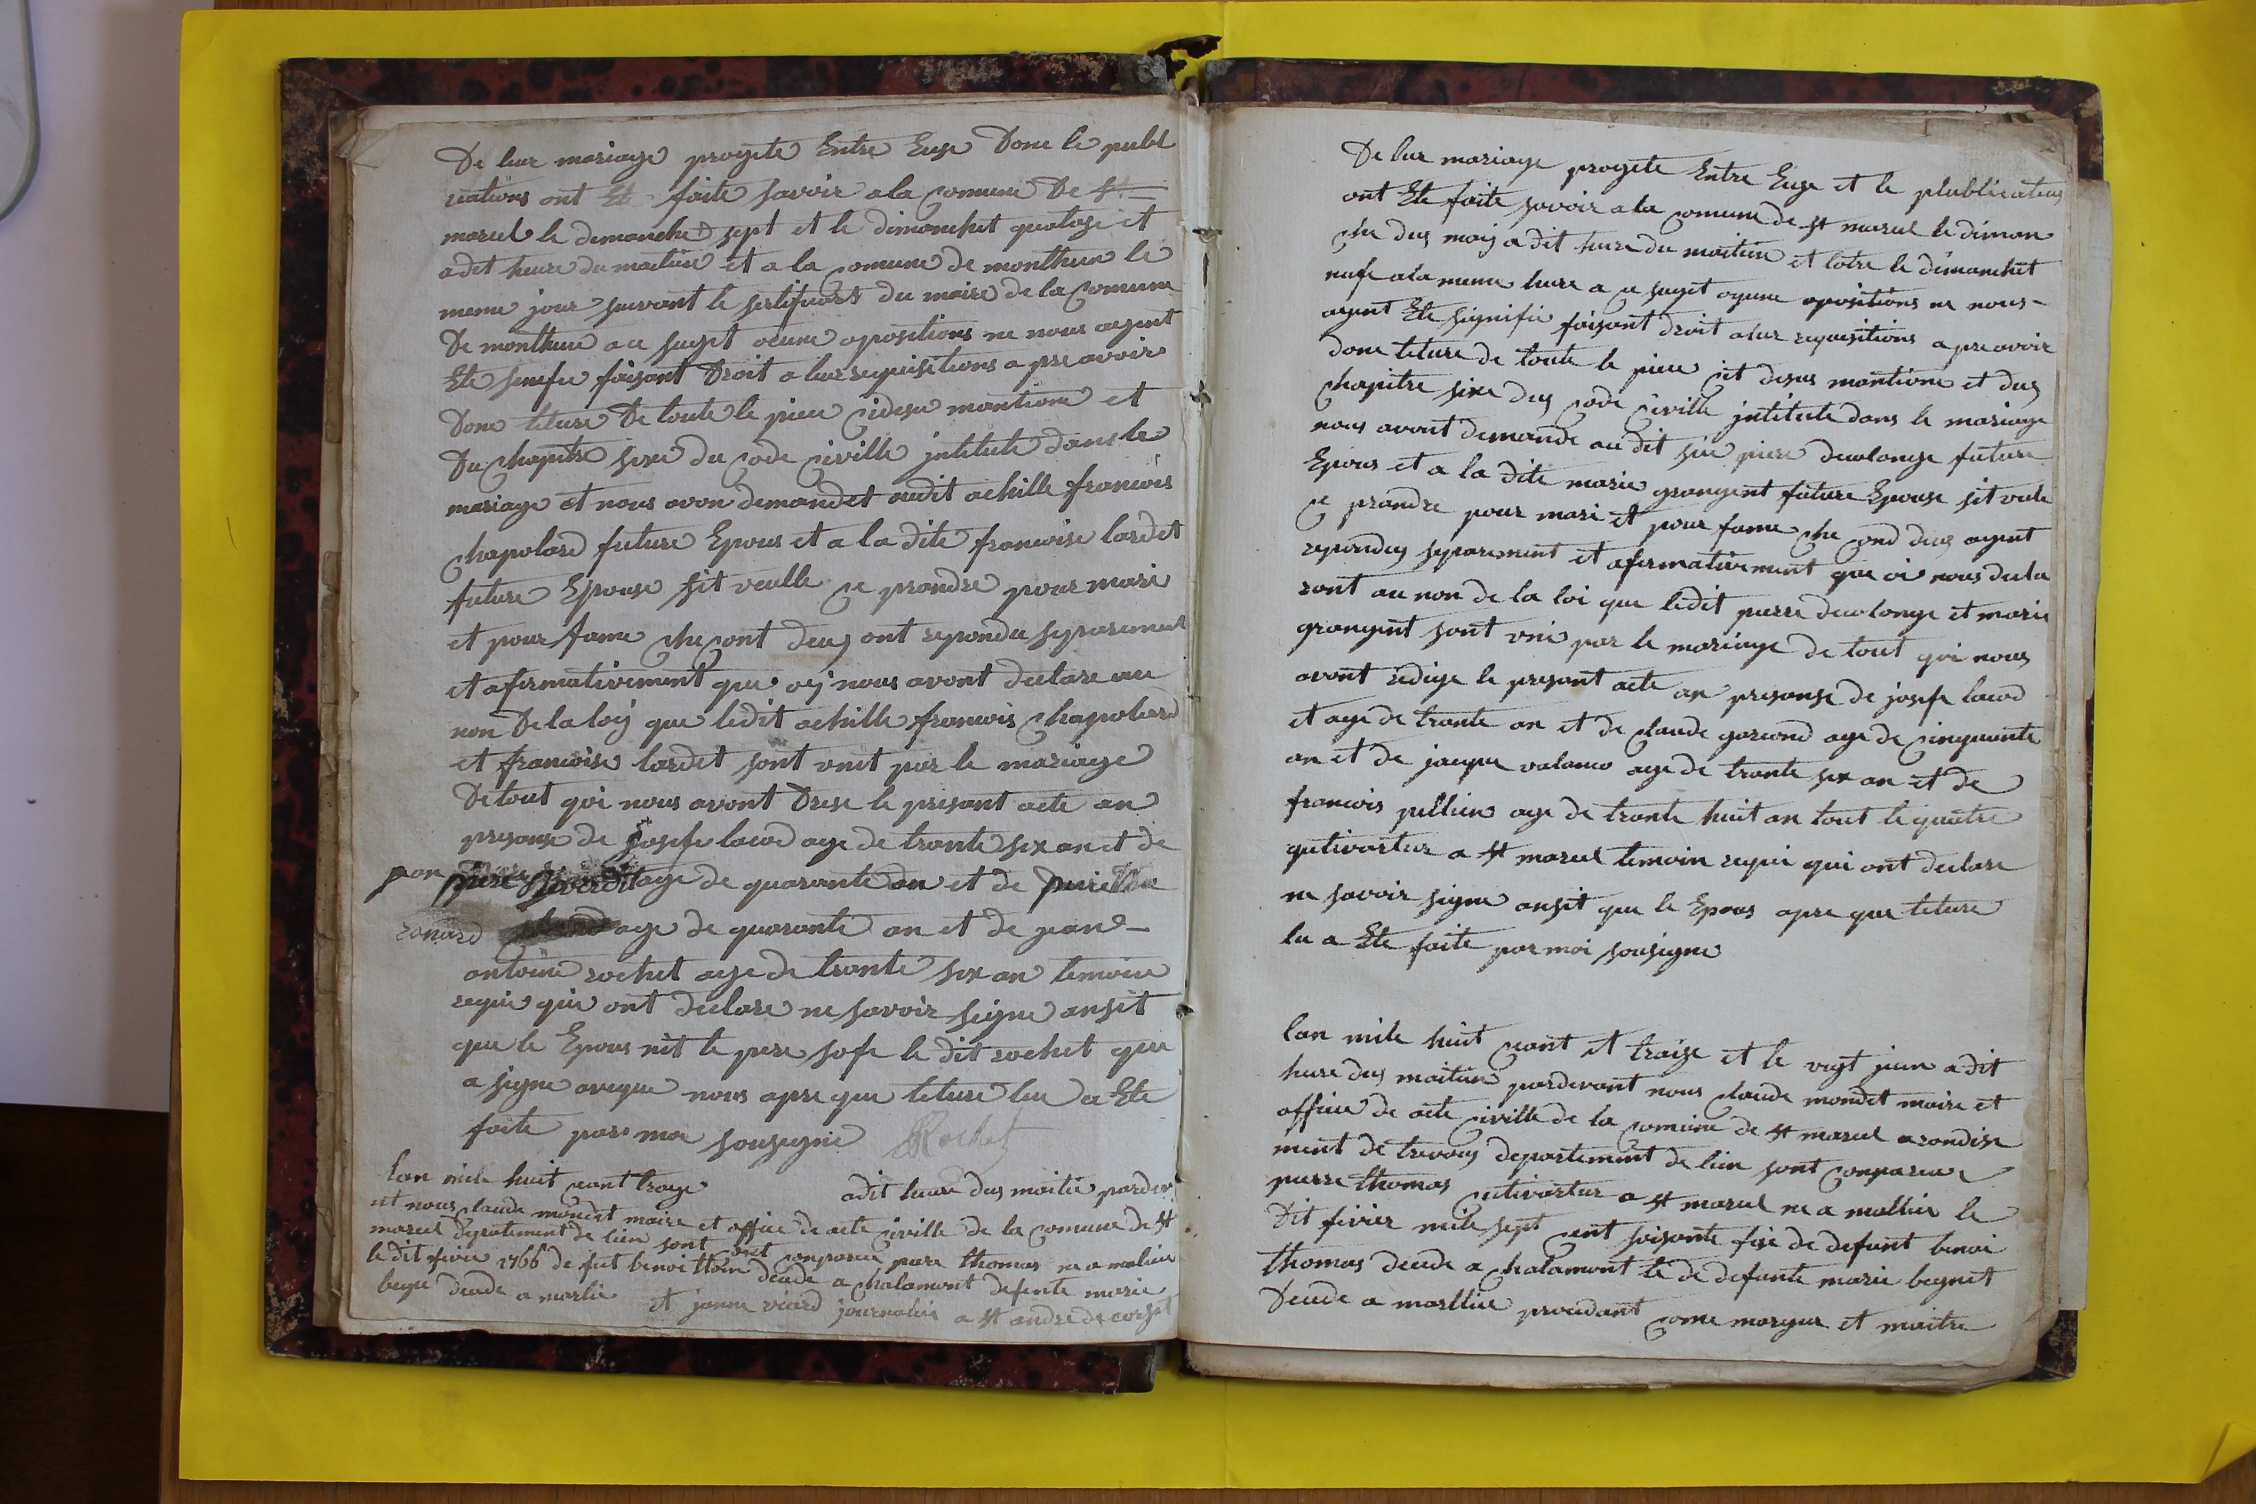 De leur mariage progete Entre Euse Done le publi
cations ont Ete faite savoir a la Comune De st
marcel le demanche sept et le dimanchet quatose et
adit heure du maitin et a la Comune de monthieu le
meme jour suivant le sertificat du maire de la Comune
De monthieu a ce suget ocune opositions ne nous ayent
Ete senefie faisant Droit a leur requisitions a pre avoir
Done leture De toute le piece cidesu mantione et
Du Chapitre sixe du Code Civille intitule dans le
mariage et nous avon demandet audit achille francois
Chapolard future Epous et a la dite francoise lardet
future Epouse sit veulle ce prandre pour mari
et pour fame che cont deus ont repondu separement
et afirmativement que oy nous avont declare au
non De la loy que ledit achille francois Chapolard
et francoise lardet sont unit par le mariage
De tout qoi nous avont Drese le presant acte an
presanse de josefe lacod age de trante six an et de
age de quarante an et de
ronard age de quarante an et de jean
antoine rochet age de trante six an temoin
requi qui ont declare ne savoir signe ansit
que le Epous nit le pere sofe le dit rochet que
a signe aveque nous apre que leture leu a Ete
faite par moi sousigne Rochet
lan mile huit cant traize adit heure dus maitin pardev
nt nous claude mondet maire et office de acte civille de la comune de st
marcel departement de lien sont comparu piere thomas ne a malieu
le dit fevier 1766 de fut benoi thom decede a chalamont defente marie
begue decede a marlie et janne viard journalier a st andre de corsit
De leur mariage progete Entre Euse et le plublications
ont Ete faite savoir a la Comune de st marcel le diman
che dus mois a dit heure du maitin et lotre le dimanchet
nufe a la meme heure a ce suget ogune opositions ne nous
ayent Ete signifie faisant droit a leur requisitions a pre avoir
done leture de toute le piece cit desus mantione et dus
Chapitre sixe dus Code Civille intitule dans le mariage
nous avont demande au dit sieu piere decolonge future
Epous et a la dite marie grangent future Epouse sit veule
ce prandre pour mari et pour fame che cond deus ayent
repondus separement et afirmativement que oi nous decla
ront au non de la loi que ledit pierre decolonge et marie
grangent sont uni par le mariage de tout qoi nous
avont redige le presant acte an presanse de josefe lacod
et age de trante an et de claude garcond age de cinquante
an et de jacque valance age de trante six an et de
francois pullien age de trante huit an tout le quatre
qutivarteur a st marcel temoin requi qui ont declare
ne savoir signe ansit que le Epous apre que leture
lu a Ete faite par moi sousigne
lan mile huit cant et traize et le vagt juin a dit
heure dus maitin pardevant nous claude mondet maire et
office de acte civille de la comune de st marcel arondise
ment de trevous departement de lien sont comparue
pierre thomas qutivarteur a st marcel ne a mallieu le
Dit fevier mile sept cent soisante sise de defunt benoi
thomas decede a chalamont le de defunte marie begnet
Decede a marllieu procedant come mageur et maitre